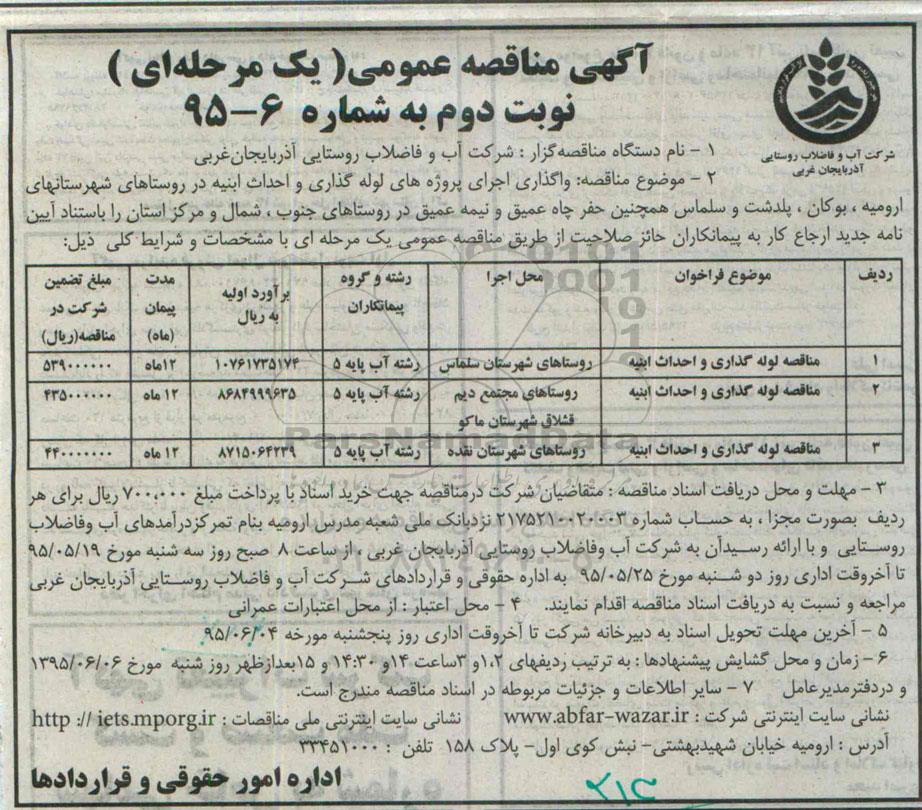 آگهی مناقصه عمومی( یک مرحله‌ای )
نوبت دوم به شماره ۶-۹۵
شرکت آب و فاضلاب روستایی
آذربایجان غربی
۱ - نام دستگاه مناقصه‌گزار : شرکت آب و فاضلاب روستایی آذربایجان‌غربی
۲ - موضوع مناقصه: واگذاری اجرای پروژه های لوله گذاری و احداث ابنیه در روستاهای شهرستانهای
ارومیه ، بوکان ، پلدشت و سلماس همچنین حفر چاه عمیق و نیمه عمیق در روستاهای جنوب ، شمال و مرکز استان را باستناد آیین
نامه جدید ارجاع کار به پیمانکاران حائز صلاحیت از طریق مناقصه عمومی یک مرحله ای با مشخصات و شرایط کلی ذیل:
ردیف موضوع فراخوان محل اجرا رشته و گروه پیمانکاران برآورد اولیه به ریال مدت پیمان (ماه) مبلغ تضمین شرکت در مناقصه(ریال)
۱ مناقصه لوله گذاری و احداث ابنیه روستاهای شهرستان سلماس رشته آب پایه ۵ ۱۰۷۶۱۷۳۵۱۷۴ ۱۲ماه ۵۳۹۰۰۰۰۰۰
۲ مناقصه لوله گذاری و احداث ابنیه روستاهای مجتمع دیم قشلاق شهرستان ماکو رشته آب پایه ۵ ۸۶۸۴۹۹۹۶۳۵ ۱۲ ماه ۴۳۵۰۰۰۰۰۰
۳ مناقصه لوله گذاری و احداث ابنیه روستاهای شهرستان نقده رشته آب پایه ۵ ۸۷۱۵۰۶۴۲۳۹ ۱۲ ماه ۴۴۰۰۰۰۰۰۰
ParsNamadData
۳ - مهلت و محل دریافت اسناد مناقصه : متقاضیان شرکت درمناقصه جهت خرید اسناد با پرداخت مبلغ ۷۰۰,۰۰۰ ریال برای هر
ردیف بصورت مجزا ، به حساب شماره ۲۱۷۵۲۱۰۰۲۰۰۰۳ نزدبانک ملی شعبه مدرس ارومیه بنام تمرکزدرآمدهای آب وفاضلاب
روستایی و با ارائه رسیدآن به شرکت آب وفاضلاب روستایی آذربایجان غربی ، از ساعت ۸ صبح روز سه شنبه مورخ ۹۵/۰۵/۱۹
تا آخروقت اداری روز دو شنبه مورخ ۹۵/۰۵/۲۵ به اداره حقوقی و قراردادهای شرکت آب و فاضلاب روستایی آذربایجان غربی
مراجعه و نسبت به دریافت اسناد مناقصه اقدام نمایند. ۴ - محل اعتبار : از محل اعتبارات عمرانی
۵ - آخرین مهلت تحویل اسناد به دبیرخانه شرکت تا آخروقت اداری روز پنجشنبه مورخه ۹۵/۰۶/۰۴
۶ - زمان و محل گشایش پیشنهادها : به ترتیب ردیفهای ۱،۲و ۳ساعت ۱۴و ۱۴:۳۰ و ۱۵بعدازظهر روز شنبه مورخ ۱۳۹۵/۰۶/۰۶
و دردفترمدیرعامل ۷ - سایر اطلاعات و جزئیات مربوطه در اسناد مناقصه مندرج است.
نشانی سایت اینترنتی شرکت : www.abfar-wazar.ir نشانی سایت اینترنتی ملی مناقصات : http :// iets.mporg.ir
آدرس : ارومیه خیابان شهیدبهشتی- نبش کوی اول- پلاک ۱۵۸ تلفن : ۳۳۴۵۱۰۰۰
اداره امور حقوقی و قراردادها